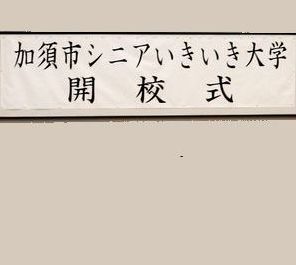 加須市シニアいきいき大学
開校式